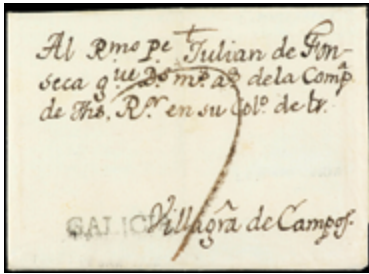 Al R.mo P.e Julian de Fon-
seca q.ue D.s m.s a.s de la Comp.a
de Jhs, R.or en su Col.o de
GALICIA Villagra de Campos.